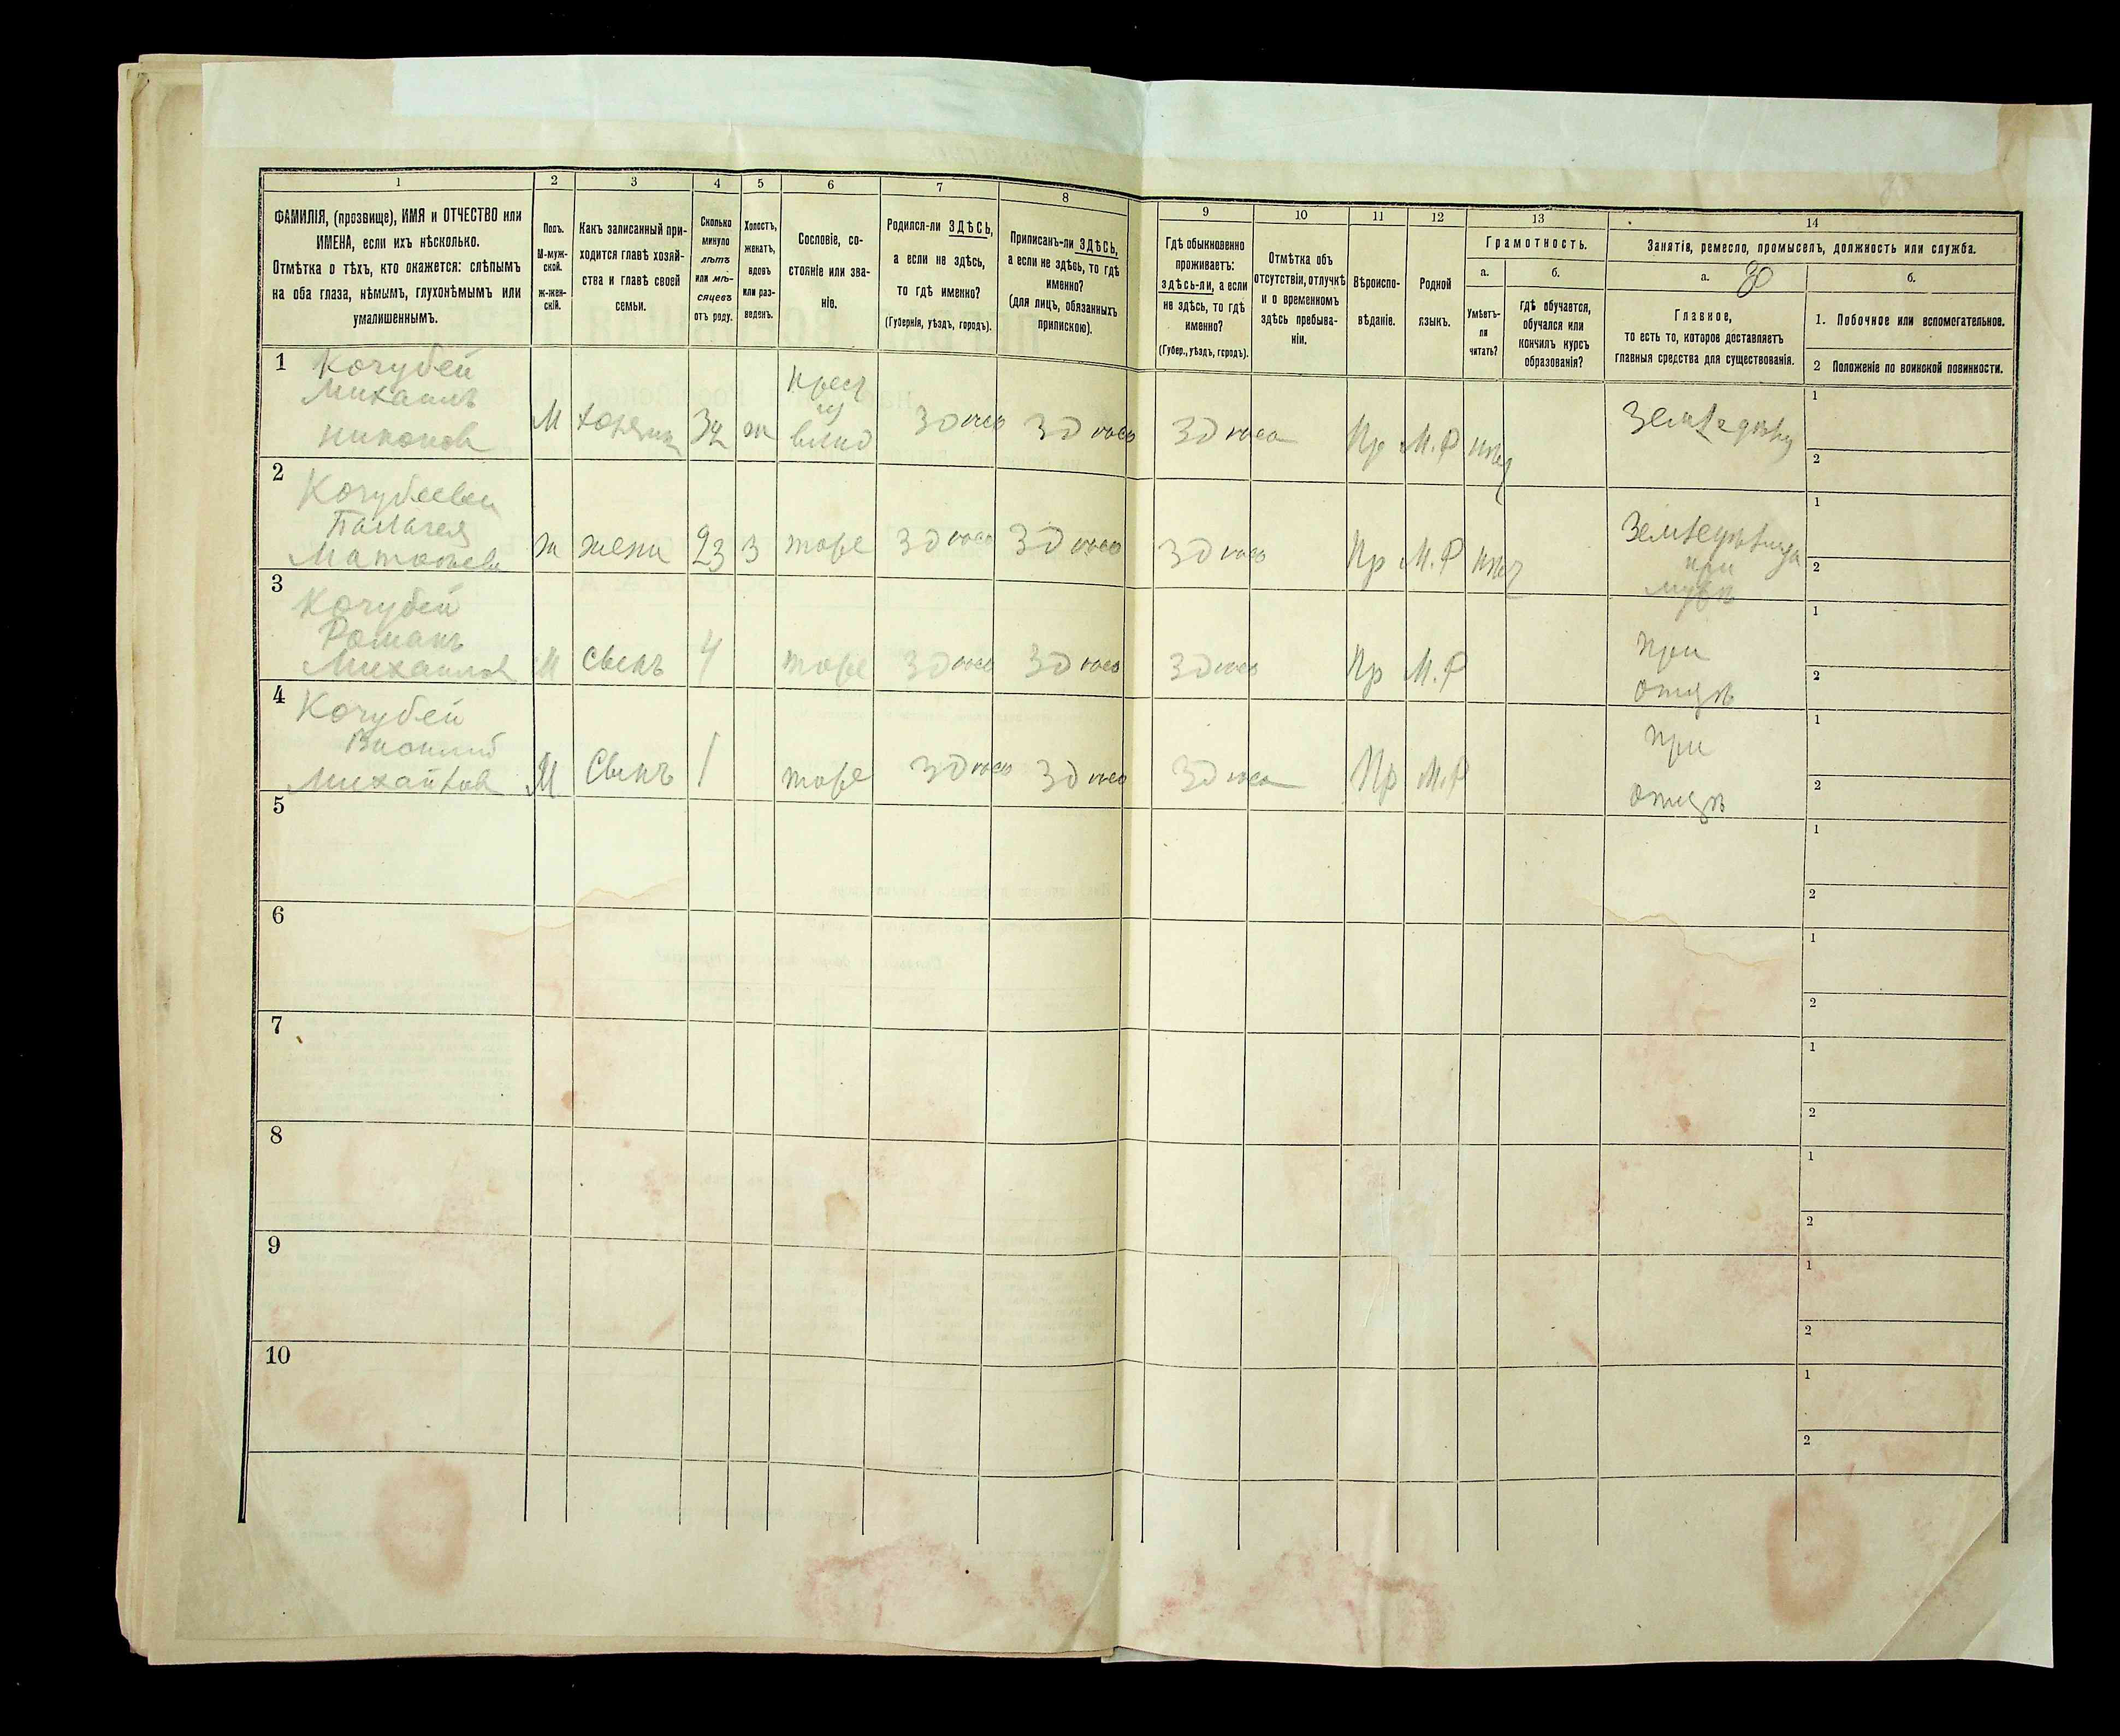 1 2 3 4 5 6 7 8 9 10 11 12 13 14
ФАМИЛІЯ, (прозвище), ИМЯ и ОТЧЕСТВО или
ИМЕНА, если ихъ нѣсколько.
Отмѣтка о тѣхъ, кто окажется: слѣпымъ
на оба глаза, нѣмымъ, глухонѣмымъ или
умалишеннымъ.
Полъ.
М-муж-
ской.
ж-жен-
скій.
Какъ записанный при-
ходится главѣ хозяй-
ства и главѣ своей
семьи.
Сколько
минуло
лѣтъ
или мѣ-
сяцевъ
отъ роду.
Холостъ,
женатъ,
вдовъ
или раз-
веденъ.
Сословіе, со-
стояніе или зва-
ніе.
Родился-ли ЗДѢСЬ,
а если не здѣсь,
то гдѣ именно?
(Губернія, уѣздъ, городъ).
Приписанъ-ли ЗДѢСЬ,
а если не здѣсь, то гдѣ
именно?
(для лицъ, обязанныхъ
припискою).
Гдѣ обыкновенно
проживаетъ:
здѣсь-ли, а если
не здѣсь, то гдѣ
именно?
(Губер., уѣздъ, городъ).
Отмѣтка объ
отсутствіи, отлучкѣ
и о временномъ
здѣсь пребыва-
ніи.
Вѣроиспо-
вѣданіе.
Родной
языкъ.
Грамотность.
а. б.
Умѣетъ-
ли
читать?
гдѣ обучается,
обучался или
кончилъ курсъ
образованія?
Занятія, ремесло, промыселъ, должность или служба.
а. б.
Главное,
то есть то, которое доставляетъ
главныя средства для существованія.
1. Побочное или вспомогательное.
2 Положеніе по воинской повинности.
1 Кочубей
Михаилъ
М 32 ж здѣсь здѣсь здѣсь Пр М.Р
1
2
2
ж жена 23 З тоже здѣсь здѣсь здѣсь Пр М.Р
при
1
2
3 Кочубей
Романъ
М сынъ 4 тоже здѣсь здѣсь здѣсь Пр М.Р
при
отцѣ
1
2
4 Кочубей
М Сынъ 1 тоже здѣсь здѣсь здѣсь Пр М.Р
при
отцѣ
1
2
5
1
2
6
1
2
7
1
2
8
1
2
9
1
2
10
1
2